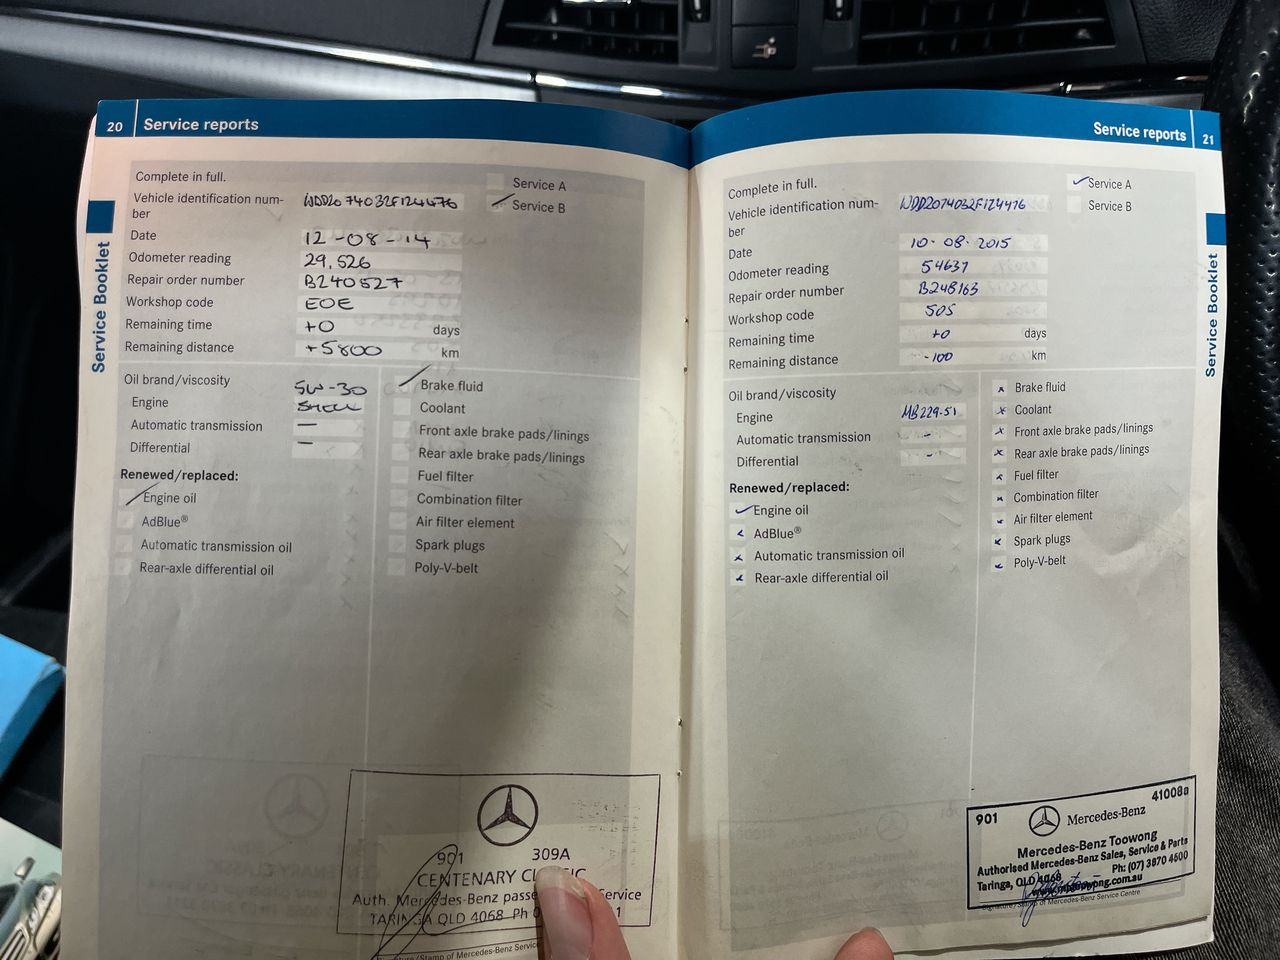 20 Service reports
Complete in full.
Service A
Service B
Vehicle identification num-
ber
WDD2074032F124476
Date 12-08-14
Odometer reading 29,526
Repair order number B240527
Workshop code EOE
Remaining time +0 days
Remaining distance +5800 km
Oil brand/viscosity 5W-30
Engine SHELL
Automatic transmission —
Differential —
Renewed/replaced:
Engine oil
AdBlue®
Automatic transmission oil
Rear-axle differential oil
Brake fluid
Coolant
Front axle brake pads/linings
Rear axle brake pads/linings
Fuel filter
Combination filter
Air filter element
Spark plugs
Poly-V-belt
901 309A
CENTENARY
Auth. Mercedes-Benz Service
TARINGA QLD 4068 Ph
Service Booklet
Service reports 21
Complete in full.
Service A
Service B
Vehicle identification num-
ber
WDD2074032F124476
Date 10·08·2015
Odometer reading 54637
Repair order number B248163
Workshop code 505
Remaining time +0 days
Remaining distance -100 km
Oil brand/viscosity
Engine MB229.51
Automatic transmission -
Differential -
Renewed/replaced:
Engine oil
AdBlue®
Automatic transmission oil
Rear-axle differential oil
Brake fluid
Coolant
Front axle brake pads/linings
Rear axle brake pads/linings
Fuel filter
Combination filter
Air filter element
Spark plugs
Poly-V-belt
901 Mercedes-Benz 41008a
Mercedes-Benz Toowong
Authorised Mercedes-Benz Sales, Service & Parts
Taringa, QLD 4068 Ph: (07) 3870 4600
Signature/Stamp of Mercedes-Benz Service Centre
Service Booklet